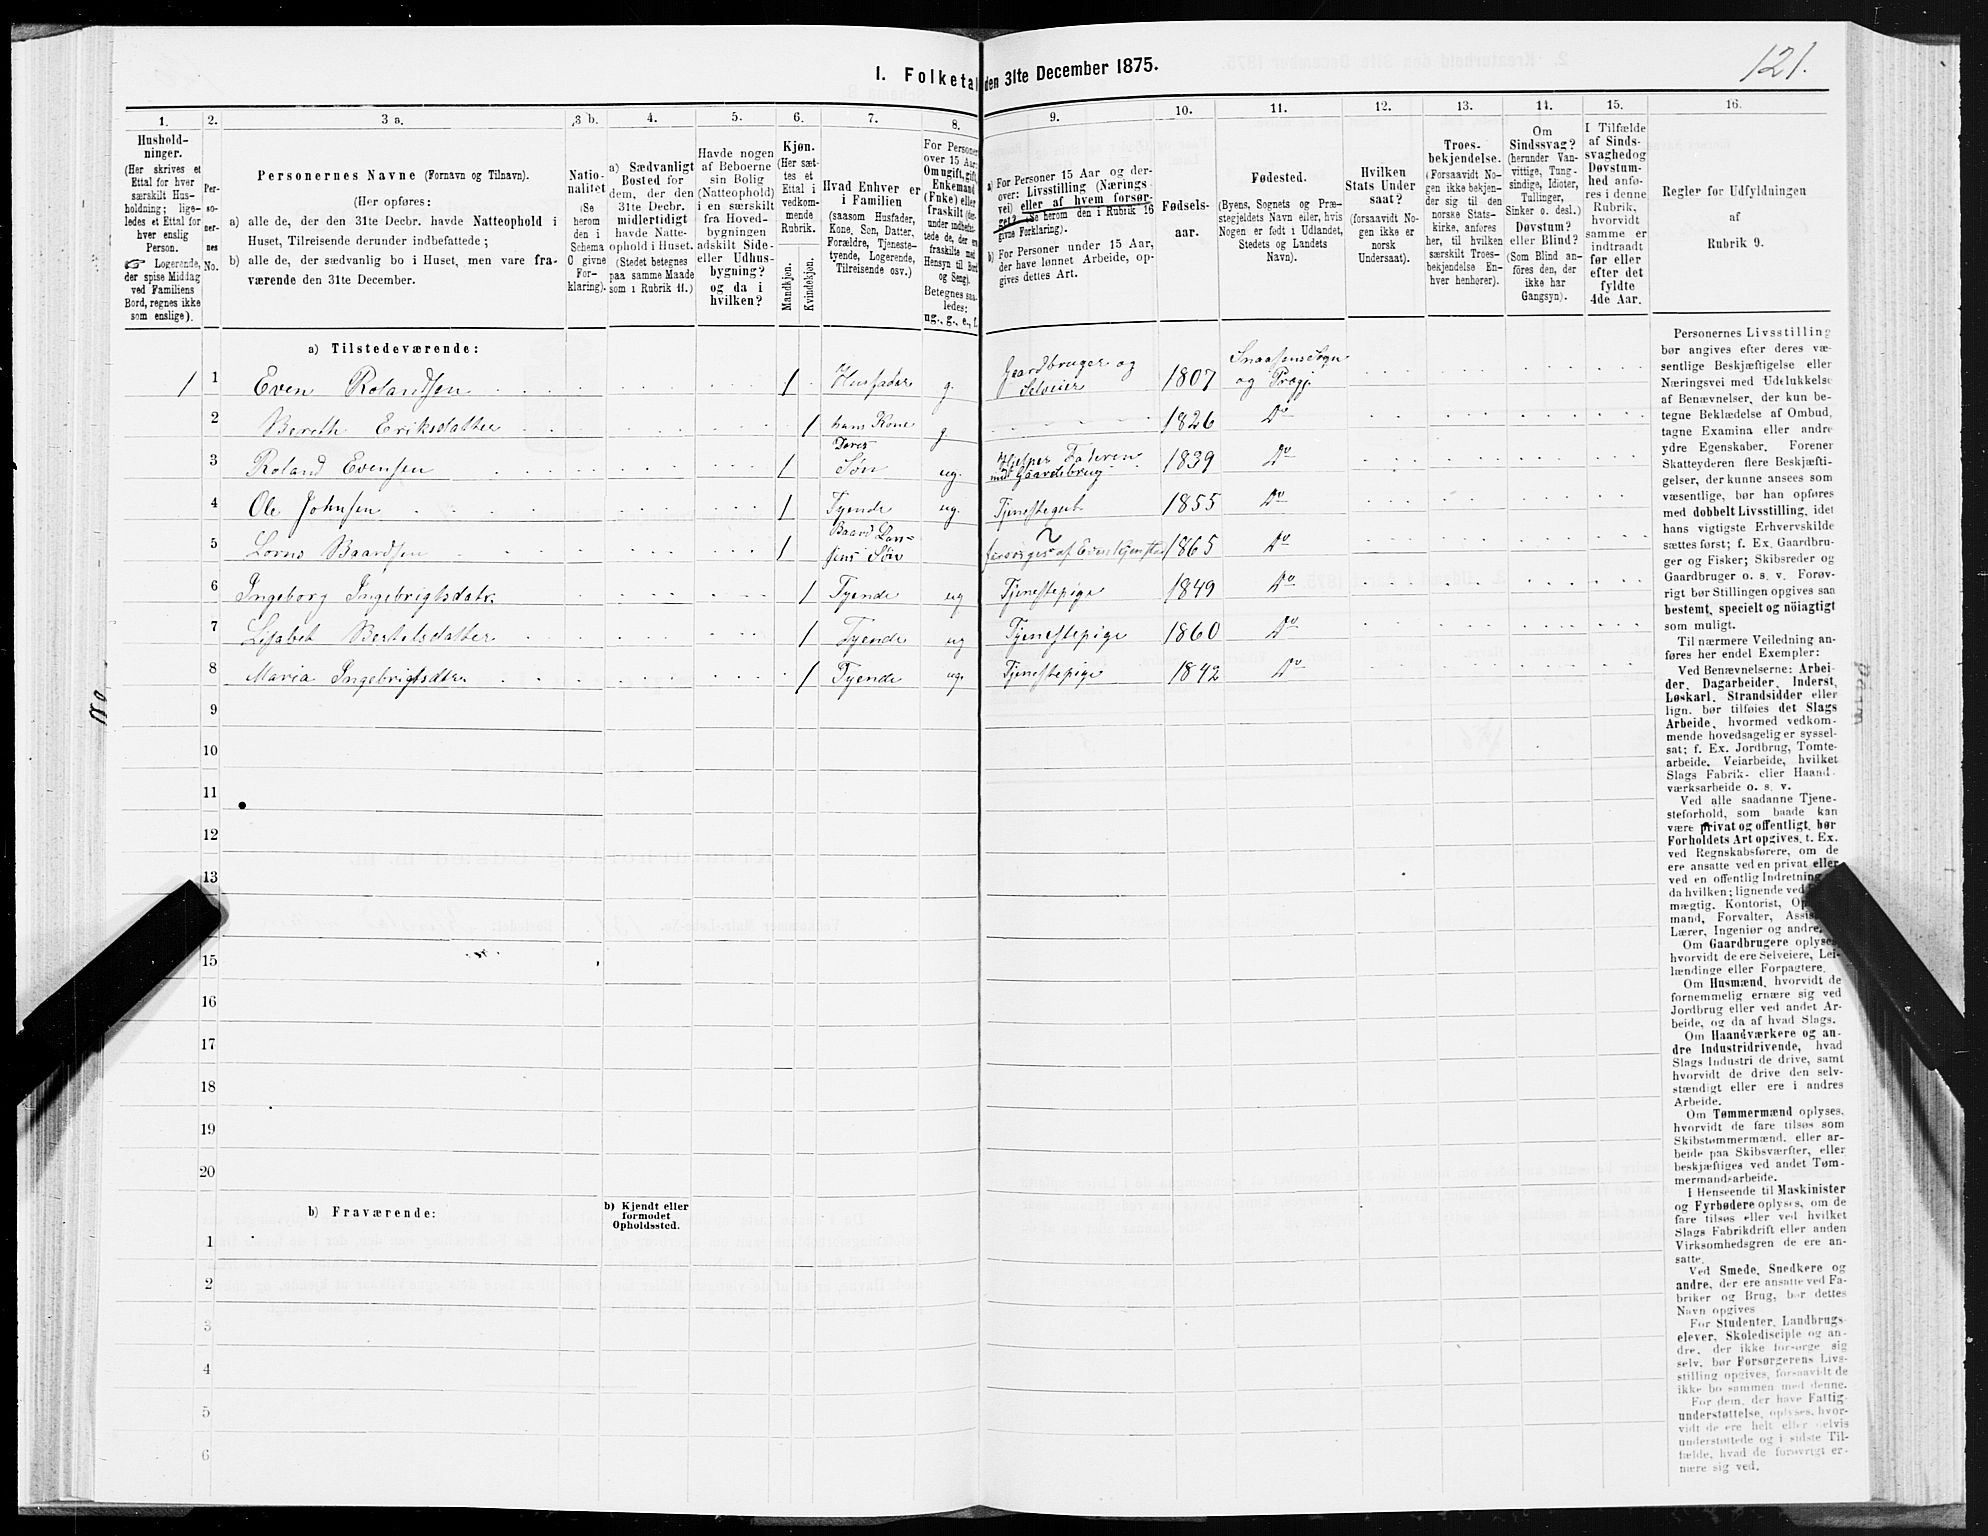 121.
I. Folketal den 31te December 1875.
1. 2. 3 a. 3 b. 4. 5. 6. 7. 8. 9. 10. 11. 12. 13. 14. 15. 16.
Hushold-
ninger.
(Her skrives et
Ettal for hver
særskilt Hus-
holdning; lige-
ledes et Ettal for
hver enslig
Person.
☞ Logerende,
der spise Middag
ved Familiens
Bord, regnes ikke
som enslige).
Per-
so-
ner-
nes
No.
Personernes Navne (Fornavn og Tilnavn).
(Her opføres:
a) alle de, der den 31te Decbr. havde Natteophold i
Huset, Tilreisende derunder indbefattede;
b) alle de, der sædvanlig bo i Huset, men vare fra-
værende den 31te December.
Natio-
nalitet
(Se
herom
den i
Schema
C givne
For-
klaring).
a) Sædvanligt
Bosted for
dem, der den
31te Decbr.
midlertidigt
havde Natte-
ophold i Huset.
(Stedet betegnes
paa samme Maade
som i Rubrik 11.)
Havde nogen
af Beboerne
sin Bolig
(Natteophold)
i en særskilt
fra Hoved-
bygningen
adskilt Side-
eller Udhus-
bygning?
og da i
hvilken?
Kjøn.
(Her sæt-
tes et
Ettal i
vedkom-
mende
Rubrik.
Mandkjøn.
Kvindekjøn.
Hvad Enhver er
i Familien
(saasom Husfader,
Kone, Søn, Datter,
Forældre, Tjeneste-
tyende, Logerende,
Tilreisende osv.)
For Personer
over 15 Aar:
Om ugift, gift,
Enkemand
(Enke) eller
fraskilt (der-
under indbefat-
tede de, der ere
fraskilte med
Hensyn til Bord
og Seng).
Betegnes saa-
ledes:
ug., g., e., f.
a) For Personer 15 Aar og der-
over: Livsstilling (Nærings
vei) eller af hvem forsør-
get? (Se herom den i Rubrik 16
givne Forklaring).
b) For Personer under 15 Aar,
der have lønnet Arbeide, op-
gives dettes Art.
Fødsels-
aar.
Fødested.
(Byens, Sognets og Præ-
stegjeldets Navn eller, hvis
Nogen er født i Udlandet,
Stedets og Landets
Navn).
Hvilken
Stats Under
saat?
(forsaavidt No-
gen ikke er
norsk
Undersaat).
Troes-
bekjendelse.
(Forsaavidt No-
gen ikke bekjen-
der sig til den
norske Stats-
kirke, anføres
her, til hvilken
særskilt Troes-
bekjendelse En-
hver henhører).
Om
Sindssvag?
(herunder Van-
vittige, Tung-
sindige, Idioter,
Sinker o. desl.)
Døvstum?
eller Blind?
(Som Blind an-
føres den, der
ikke har
Gangsyn).
I Tilfælde
af Sinds-
svaghed og
Døvstum-
hed anfø-
res i denne
Rubrik,
hvorvidt
samme er
indtraadt
før eller
efter det
fyldte
4de Aar.
Regler for Udfyldningen
af
Rubrik 9.
a) Tilstedeværende:
1 1 Even Rolandsen 1 Husfader g. Gaardbruger og Selveier 1807 Snaasens Sogn og Prægj.
2 Bereth Eriksdatter 1 hans Kone g 1826 Do
3 Roland Evensen 1 Deres Søn ug. Hjelper Faderen med Gaardsbrug 1839 Do
4 Ole Johnsen 1 Tyende ug. Tjenestegut 1855 Do
5 Lorns Baardsen 1 Baard Lornsens Søn forsørges af Even 1865 Do
6 Ingeborg Ingebrigtsdatr. 1 Tyende ug Tjenestepige 1849 Do
7 Lisabet Bertelsdatter 1 Tyende ug Tjenestepige 1860 Do
8 Maria Ingebrigtsdatr 1 Tyende ug. Tjenestepige 1842 Do
9
10
11
12
13
15
16
17
18
19
20
b) Fraværende:
b) Kjendt eller
formodet
Opholdssted.
1
2
3
4
5
6
Personernes Livsstilling
bør angives efter deres væ-
sentlige Beskjæftigelse eller
Næringsvei med Udelukkelse
af Benævnelser, der kun be-
tegne Beklædelse af Ombud,
tagne Examina eller andre
ydre Egenskaber. Forener
Skatteyderen flere Beskjæfti-
gelser, der kunne ansees som
væsentlige, bør han opføres
med dobbelt Livsstilling, idet
hans vigtigste Erhvervskilde
sættes først; f. Ex. Gaardbru-
ger og Fisker; Skibsreder og
Gaardbruger o. s. v. Forøv-
rigt bør Stillingen opgives saa
bestemt, specielt og nöiagtigt
som muligt.
Til nærmere Veiledning an-
føres her endel Exempler:
Ved Benævnelserne: Arbei-
der, Dagarbeider, Inderst,
Løskarl, Strandsidder eller
lign. bør tilføies det Slags
Arbeide, hvormed vedkom-
mende hovedsagelig er syssel-
sat; f. Ex. Jordbrug, Tomte-
arbeide, Veiarbeide, hvilket
Slags Fabrik- eller Haand-
værksarbeide o. s. v.
Ved alle saadanne Tjene-
steforhold, som baade kan
være privat og offentligt, bør
Forholdets Art opgives, t. Ex.
ved Regnskabsførere, om de
ere ansatte ved en privat eller
ved en offentlig Indretning
da hvilken; lignende ved
mægtig, Kontorist,
mand, Forvalter,
Lærer, Ingeniør og andre.
Om Gaardbrugere oplyses,
hvorvidt de ere Selveiere, Lei-
lændinge eller Forpagtere.
Om Husmænd, hvorvidt de
fornemmelig ernære sig ved
Jordbrug eller ved andet Ar-
beide, og da af hvad Slags.
Om Haandværkere og an-
dre Industridrivende, hvad
Slags Industri de drive, samt
hvorvidt de drive den selv-
stændigt eller ere i andres
Arbeide.
Om Tømmermænd oplyses,
hvorvidt de fare tilsøs som
Skibstømmermænd, eller ar-
beide paa Skibsværfter, eller
beskjæftiges ved andet Tøm-
mermandsarbeide.
I Henseende til Maskinister
og Fyrbødere oplyses, om de
fare tilsøs eller ved hvilket
Slags Fabrikdrift eller anden
Virksomhedsgren de ere an-
satte.
Ved Smede, Snedkere og
andre, der ere ansatte ved Fa-
briker og Brug, bør dettes
Navn opgives
For Studenter, Landbrugs-
elever, Skoledisciple og an-
dre, der ikke forsørge sig
selv, bør Forsørgerens Livs-
stilling opgives, forsaavidt de
ikke bo sammen med denne.
For dem, der have Fattig-
understøttelse, oplyses, hvor-
vidt de ere helt eller delvis
understøttede og i sidste Til-
fælde, hvad de forøvrigt er-
nære sig ved.